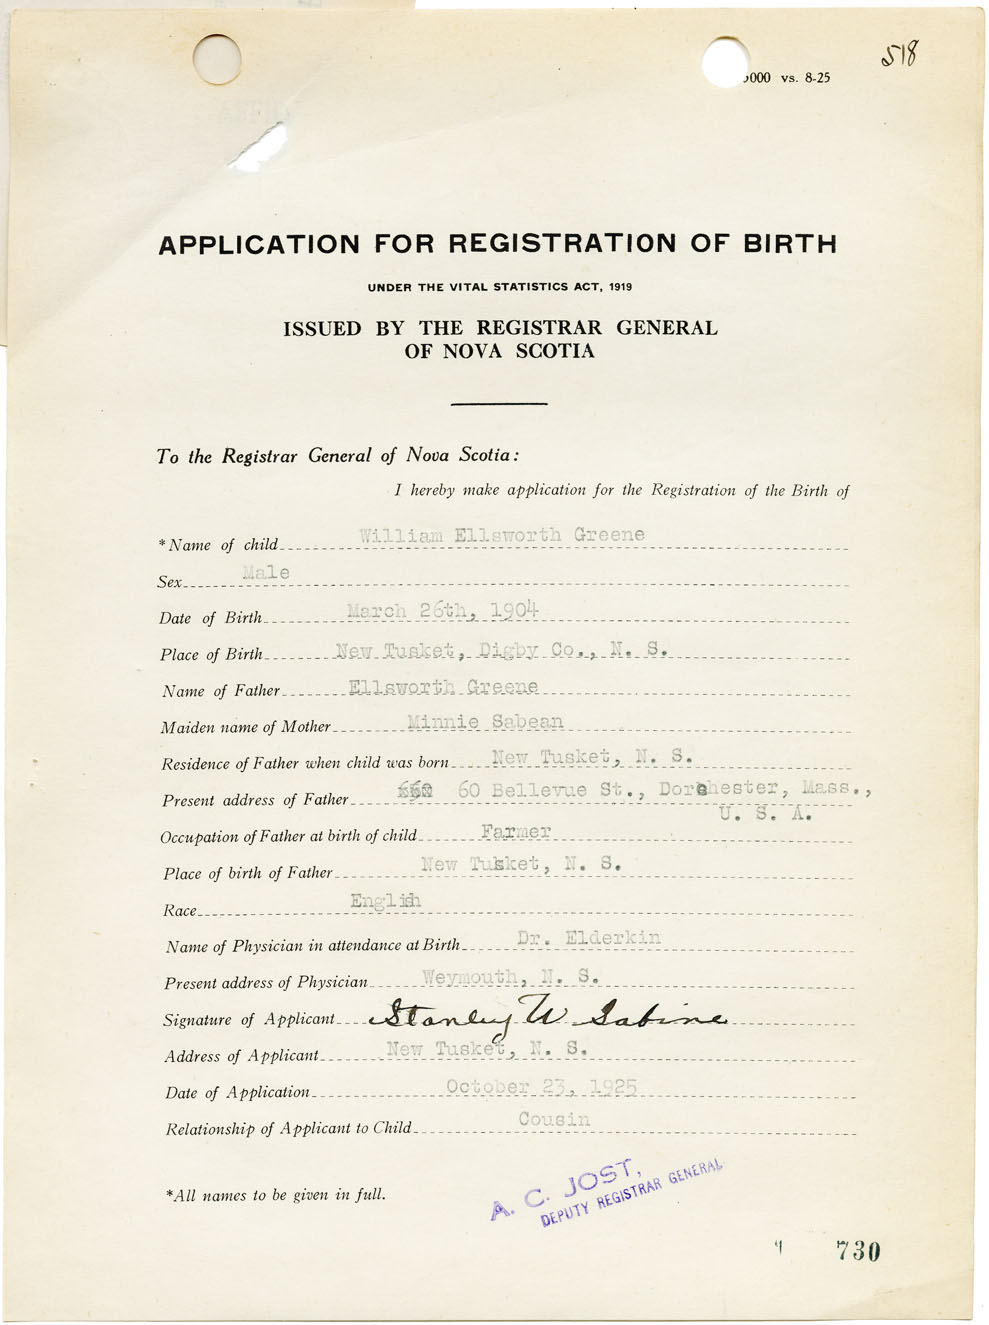 518
000 vs. 8-25
APPLICATION FOR REGISTRATION OF BIRTH
UNDER THE VITAL STATISTICS ACT, 1919
ISSUED BY THE REGISTRAR GENERAL
OF NOVA SCOTIA
To the Registrar General of Nova Scotia:
I hereby make application for the Registration of the Birth of
*Name of child William Ellsworth Greene
Sex Male
Date of Birth March 26th, 1904
Place of Birth New Tusket, Digby Co., N. S.
Name of Father Ellsworth Greene
Maiden name of Mother Minnie Sabean
Residence of Father when child was born New Tusket, N. S.
Present address of Father 60 Bellevue St., Dorchester, Mass.,
U. S. A.
Occupation of Father at birth of child Farmer
Place of birth of Father New Tusket, N. S.
Race English
Name of Physician in attendance at Birth Dr. Elderkin
Present address of Physician Weymouth, N. S.
Signature of Applicant Stanley W Sabine
Address of Applicant New Tusket, N. S.
Date of Application October 23, 1925
Relationship of Applicant to Child Cousin
*All names to be given in full.
A. C. JOST,
DEPUTY REGISTRAR GENERAL
730